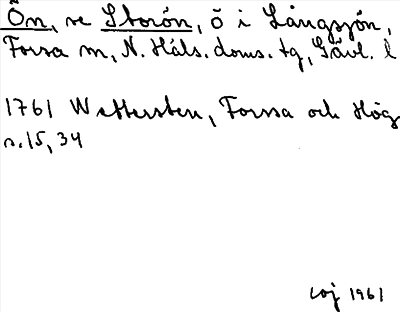 Ön, se Storön, ö i Långsjön,
Forsa sn, N. Häls. doms. tg, Gävl. l
1761 Wettersten, Forssa och Hög
s. 15, 34
coj 1961